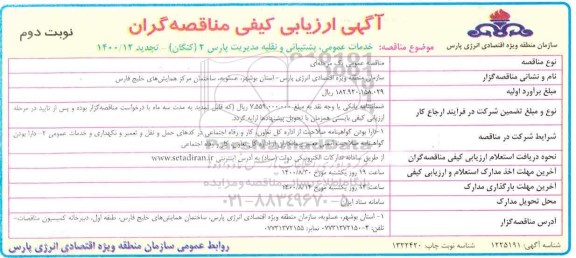 آگهی ارزیابی کیفی مناقصه گران
نوبت دوم
سازمان منطقه ویژه اقتصادی انرژی پارس
موضوع مناقصه: خدمات عمومی، پشتیبانی و نقلیه مدیریت پارس ۲ (کنگان) - تجدید ۱۴۰۰/۱۲
نوع مناقصه
مناقصه عمومی یک مرحله‌ای
نام و نشانی مناقصه‌گزار
سازمان منطقه ویژه اقتصادی انرژی پارس - استان بوشهر، عسلویه، ساختمان مرکز همایش‌های خلیج فارس
مبلغ برآورد اولیه
۱۸۲،۹۲۰،۱۵۸،۰۲۹ ریال
نوع و مبلغ تضمین شرکت در فرایند ارجاع کار
ضمانتنامه بانکی یا وجه نقد به مبلغ ۷،۵۵۹،۰۰۰،۰۰۰ ریال (که قابل تمدید به مدت سه ماه با درخواست مناقصه‌گزار بوده و پس از تایید در مرحله
ارزیابی کیفی بایستی همزمان با تحویل پیشنهادها ارایه گردد.
شرایط شرکت در مناقصه
۱-دارا بودن گواهینامه صلاحیت از اداره کل تعاون، کار و رفاه اجتماعی در کدهای حمل و نقل و تعمیر و نگهداری و خدمات عمومی ۲-دارا بودن
نحوه دریافت استعلام ارزیابی کیفی مناقصه‌گران
از طریق سامانه تدارکات الکترونیکی دولت (ستاد) به آدرس اینترنتی www.setadiran.ir
آخرین مهلت اخذ مدارک استعلام و ارزیابی کیفی
ساعت ۱۹ روز یکشنبه مورخ ۱۴۰۰/۸/۳۰
آخرین مهلت بارگذاری مدارک
محل تحویل مدارک
سامانه ستاد ایران
آدرس مناقصه‌گزار
۱- استان بوشهر، عسلویه، سازمان منطقه ویژه اقتصادی انرژی پارس، ساختمان همایش‌های خلیج فارس، طبقه اول، دبیرخانه کمیسیون مناقصات-
۰۲۱-۸۸۳۴۹۶۷۰
شناسه آگهی: ۱۲۲۵۱۹۱
شناسه نوبت چاپ: ۱۳۲۲۴۲۰
روابط عمومی سازمان منطقه ویژه اقتصادی انرژی پارس